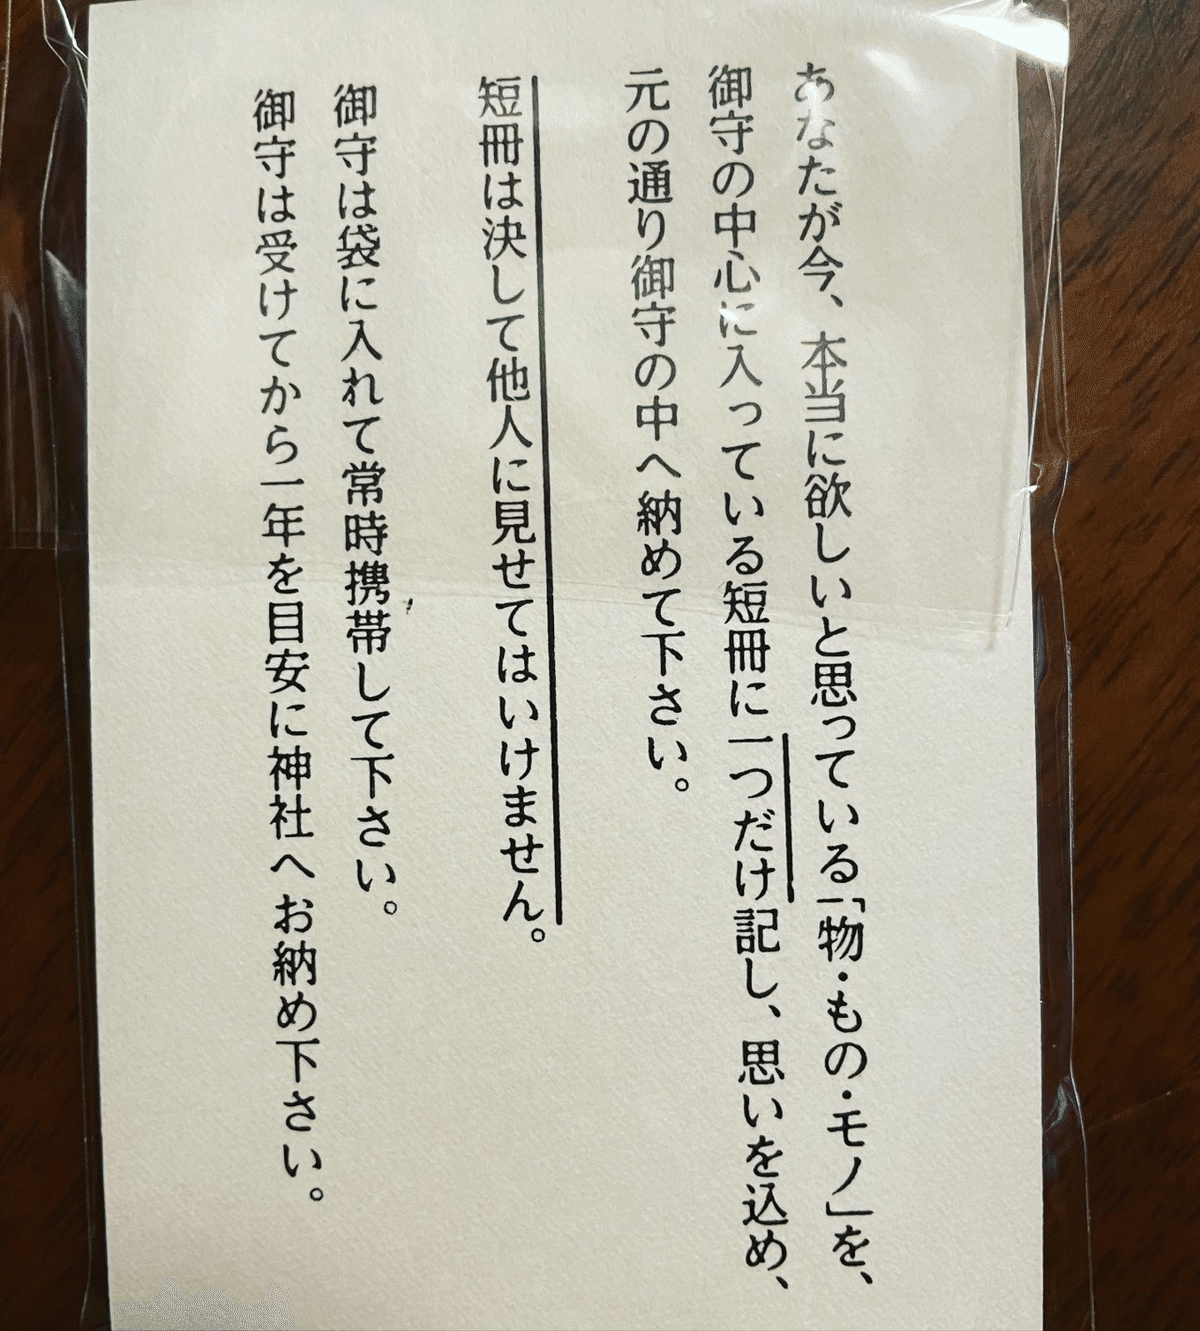 あなたが今、本当に欲しいと思っている「物・もの・モノ」を、
御守の中心に入っている短冊に一つだけ記し、思いを込め、
元の通り御守の中へ納めて下さい。
短冊は決して他人に見せてはいけません。
御守は袋に入れて常時携帯して下さい。
御守は受けてから一年を目安に神社へお納め下さい。